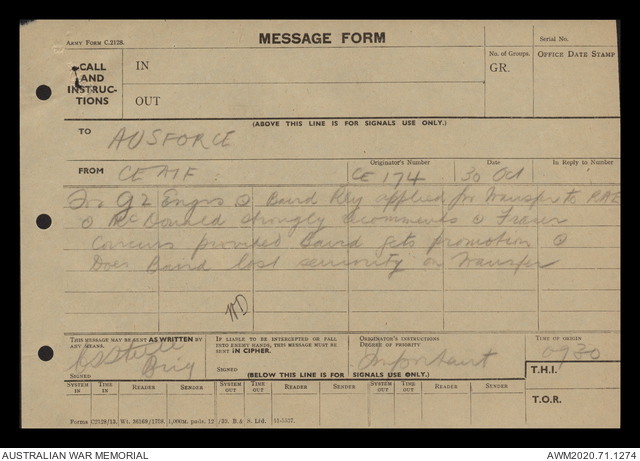 MESSAGE FORM
ARMY FORM C.2128.
Serial No.
CALL AND INSTRUC- TIONS
IN
OUT
No. of Groups.
GR.
OFFICE DATE STAMP
(ABOVE THIS LINE IS FOR SIGNALS USE ONLY.)
TO AUSFORCE
FROM CE AIF
Originator's Number CE 174
Date 30 Oct
In Reply to Number
For G2 Engrs Baird Rly applied for transfer to RAE
McDonald strongly recommends Fraser
Concurs provided Baird gets promotion
Does Baird lost seniority on transfer
THIS MESSAGE MAY BE SENT AS WRITTEN BY ANY MEANS.
SIGNED
Brig
IF LIABLE TO BE INTERCEPTED OR FALL INTO ENEMY HANDS, THIS MESSAGE MUST BE SENT IN CIPHER.
SIGNED
ORIGINATOR'S INSTRUCTIONS
DEGREE OF PRIORITY
Important
TIME OF ORIGIN
0930
T.H.I.
T.O.R.
(BELOW THIS LINE IS FOR SIGNALS USE ONLY.)
SYSTEM IN TIME IN READER SENDER SYSTEM OUT TIME OUT READER SENDER SYSTEM OUT TIME OUT READER SENDER
AUSTRALIAN WAR MEMORIAL
AWM2020.71.1274